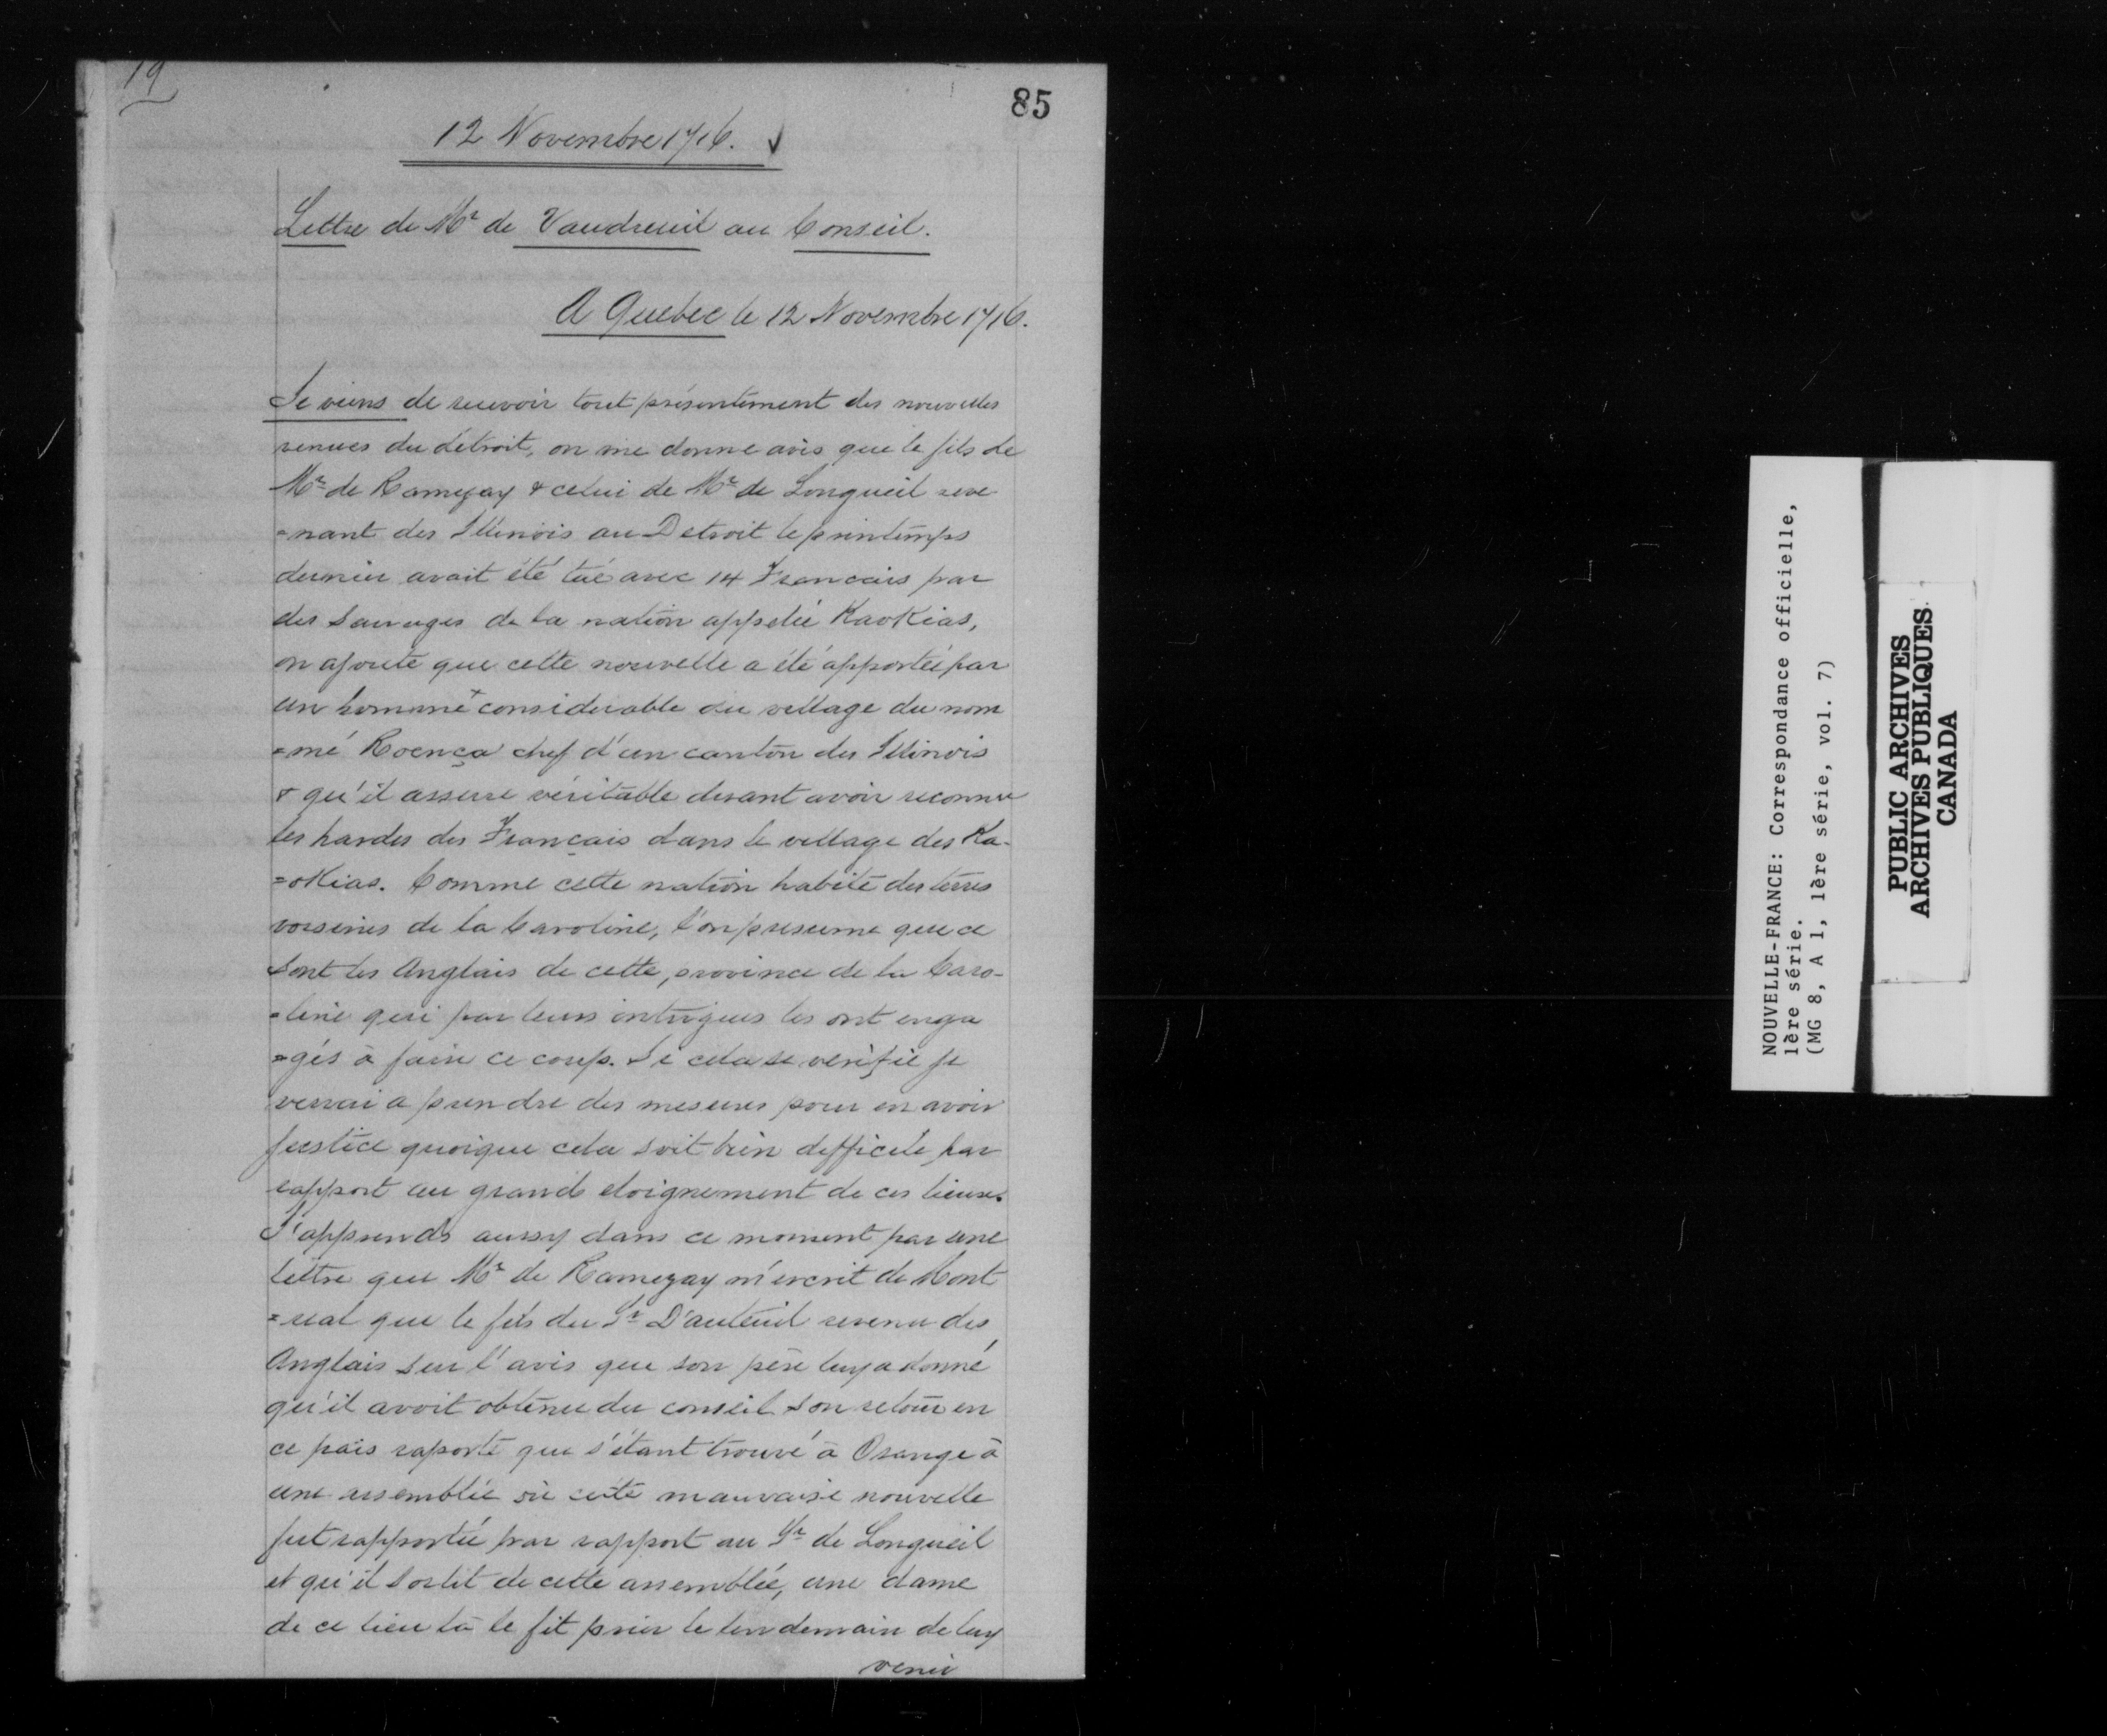 19
85
12 Novembre 1716.
Lettre de Mr de Vaudreuil au Conseil.
A Quebec le 12 Novembre 1716.
Je viens de recevoir tout présentement des nouvelles
venues du détroit, on me donne avis que le fils de
Mr de Ramezay & celui de Mr de Longueil reve
=nant des Illinois au Detroit le printemps
dernier avait été tué avec 14 Francais par
des Sauvages de la nation appelée Kaokias,
on ajoute que cette nouvelle a été apportée par
un homme considerable du village du nom
=mé Roença chef d'un canton des Illinois
& qu'il assure véritable disant avoir reconnu
les hardes des Français dans le village des Ka-
=okias. Comme cette nation habite des terres
voisines de la Caroline, l'on presume que ce
sont les Anglais de cette, province de la Caro-
=line qui par leurs intrigues les ont enga
=gés à faire ce coup. Si cela se verifie je
verrai a prendre des mesures pour en avoir
justice quoique cela soit bien difficile par
rapport au grand eloignement de ces lieux.
J'apprends aussy dans ce moment par une
lettre que Mr de Ramezay m'escrit de Mont
=real que le fils du Sr D'auteuil revenu des
Anglais sur l'avis que son père luy a donné
qu'il avoit obtenu du conseil son retour en
ce païs raporte que s'étant trouvé à Orange à
une assemblée où cette mauvaise nouvelle
fut rapportée par rapport au Sr de Longueil
et qu'il sortit de cette assemblée, une dame
de ce lieu là le fit prier le lendemain de luy
venir
NOUVELLE-FRANCE: Correspondance officielle,
1ère série.
(MG 8, A 1, 1ère série, vol. 7)
PUBLIC ARCHIVES
ARCHIVES PUBLIQUES
CANADA